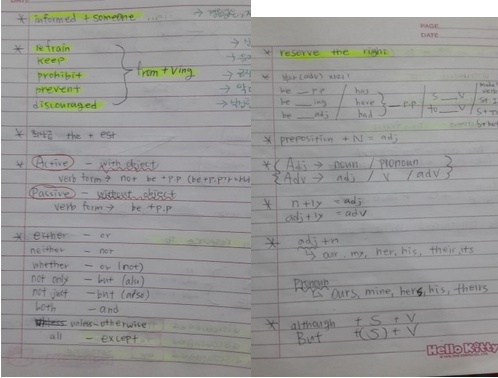 * informed + someone →
* refrain
keep
prohibit
prevent
discouraged
from + Ving
* the + est
* Active - with object
verb form → not be + p.p
Passive - without object
verb form → be + p.p
* either - or
neither - nor
whether - or (not)
not only - but (also)
not just - but (also)
both - and
unless - otherwise
all - except
PAGE
DATE
* reserve the right
be __ p.p / has
be __ ing / have __ p.p / S __ V
be __ adj / had / to __ V
* preposition + N = adj
* Adj → noun / pronoun
Adv → adj / V / adv
* n + ly = adj
adj + ly = adv
* adj + n
↳ our, my, her, his, their, its
Pronoun
↳ ours, mine, hers, his, theirs
* although + S + V
But + (S) + V
Hello Kitty